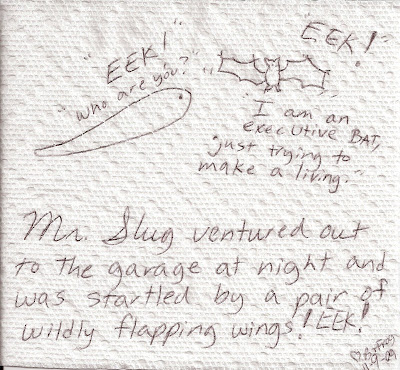 "EEK!"
"who are you?"
"EEK!"
"I am an
executive BAT,
just trying to
make a living."
Mr. Slug ventured out
to the garage at night and
was startled by a pair of
wildly flapping wings! EEK!